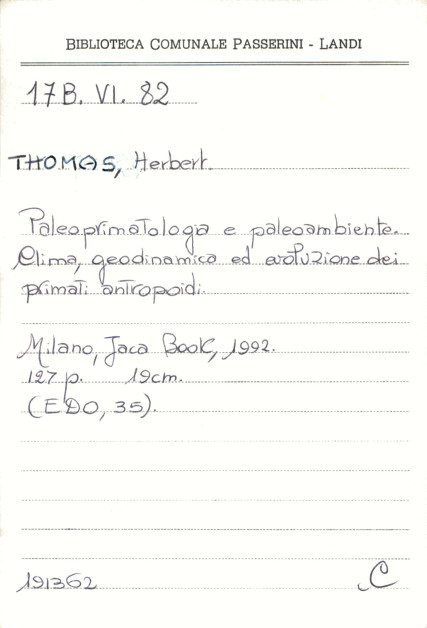 BIBLIOTECA COMUNALE PASSERINI - LANDI
17B. VI. 82
THOMAS, Herbert.
Paleoprimatologia e paleoambiente.
Clima, geodinamica ed evoluzione dei
primati antropoidi.
Milano, Jaca Book, 1992.
127 p. 19cm.
(EDO, 35).
191362 C